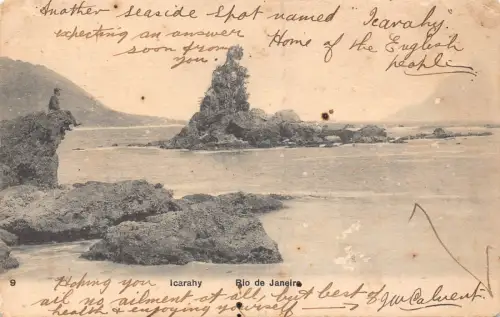 Another seaside spot named "Icarahy"
expecting an answer Home of the English
soon from people
you
9 Icarahy Rio de Janeiro
Hoping you
ail no ailment at all, but best of
health & enjoying yourself